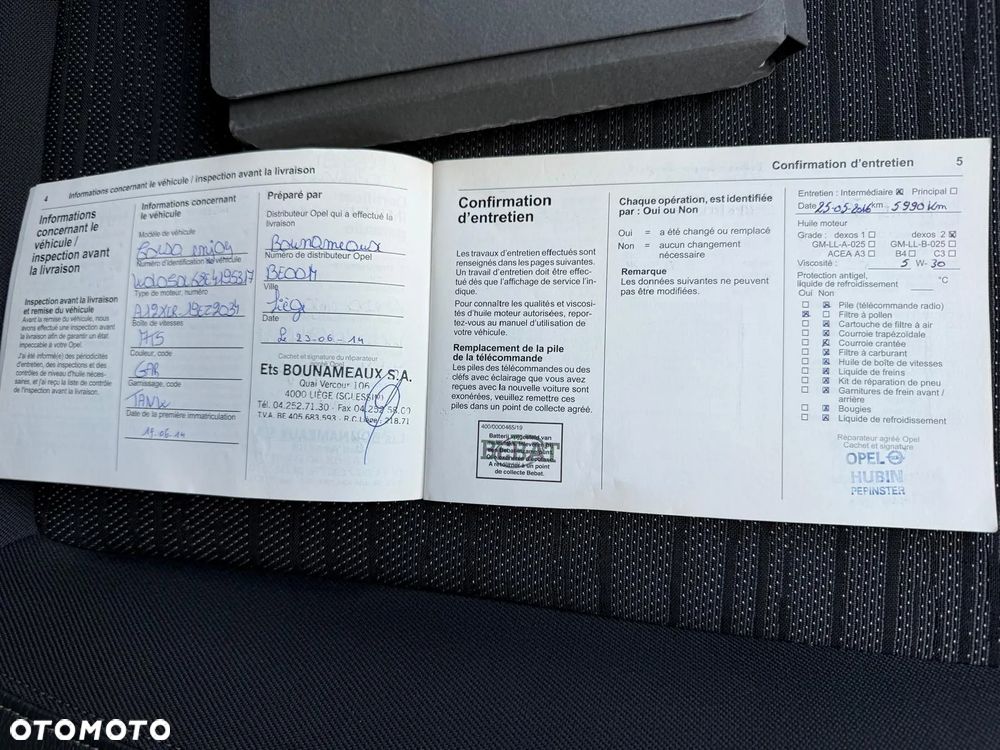 4 Informations concernant le véhicule / inspection avant la livraison
Informations
concernant le
véhicule /
inspection avant
la livraison
Inspection avant la livraison
et remise du véhicule
Avant la remise du véhicule, nous
avons effectué une inspection avant
la livraison afin de garantir un état
impeccable à votre Opel.
J'ai été informé(e) des périodicités
d'entretien, des inspections et des
contrôles de niveau d'huile néces-
saires, et j'ai reçu la liste de contrôle
de l'inspection avant la livraison.
Informations concernant
le véhicule
Modèle de véhicule
Numéro d'identification du véhicule
Type de moteur, numéro
Boîte de vitesses
MT5
Couleur, code
GAR
Garnissage, code
Date de la première immatriculation
19.06.14
Préparé par
Distributeur Opel qui a effectué la
livraison
Bounameaux
Numéro de distributeur Opel
Ville
Liège
Date
Le 23-06-14
Cachet et signature du réparateur
Ets BOUNAMEAUX S.A.
Quai Vercour 106
4000 LIÈGE (SCLESSIN)
Tél. 04.252.71.30 - Fax 04.252.58.00
T.V.A. BE 405.683.593
Confirmation d'entretien 5
Confirmation
d'entretien
Les travaux d'entretien effectués sont
renseignés dans les pages suivantes.
Un travail d'entretien doit être effec-
tué dès que l'affichage de service l'in-
dique.
Pour connaître les qualités et viscosi-
tés d'huile moteur autorisées, repor-
tez-vous au manuel d'utilisation de
votre véhicule.
Remplacement de la pile
de la télécommande
Les piles des télécommandes ou des
clefs avec éclairage que vous avez
reçues avec la nouvelle voiture sont
exonérées, veuillez remettre ces
piles dans un point de collecte agréé.
400/0000465/19
BEBAT
A retourner à un point
de collecte Bebat.
Chaque opération, est identifiée
par : Oui ou Non
Oui = a été changé ou remplacé
Non = aucun changement
nécessaire
Remarque
Les données suivantes ne peuvent
pas être modifiées.
Entretien : Intermédiaire ☒ Principal ☐
Date 25-05-2016 km 5990 Km
Huile moteur
Grade : dexos 1 ☐ dexos 2 ☒
GM-LL-A-025 ☐ GM-LL-B-025 ☐
ACEA A3 ☐ B4 ☐ C3 ☐
Viscosité : 5 W- 30
Protection antigel,
liquide de refroidissement °C
Oui Non
☐ ☒ Pile (télécommande radio)
☒ ☐ Filtre à pollen
☐ ☒ Cartouche de filtre à air
☐ ☒ Courroie trapézoïdale
☐ ☒ Courroie crantée
☐ ☒ Filtre à carburant
☐ ☒ Huile de boîte de vitesses
☐ ☒ Liquide de freins
☐ ☒ Kit de réparation de pneu
☐ ☒ Garnitures de frein avant /
arrière
☐ ☒ Bougies
☐ ☒ Liquide de refroidissement
Réparateur agréé Opel
Cachet et signature
OPEL
HUBIN
PEPINSTER
OTOMOTO